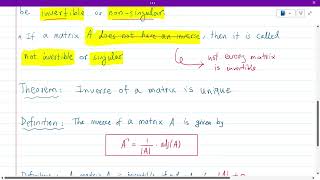 be invertible or non-singular.
If a matrix A does not have an inverse, then it is called
not invertible or singular
not every matrix
is invertible
Theorem: Inverse of a matrix is unique
Definition: The inverse of a matrix A is given by
A⁻¹ = 1/|A| · adj(A)